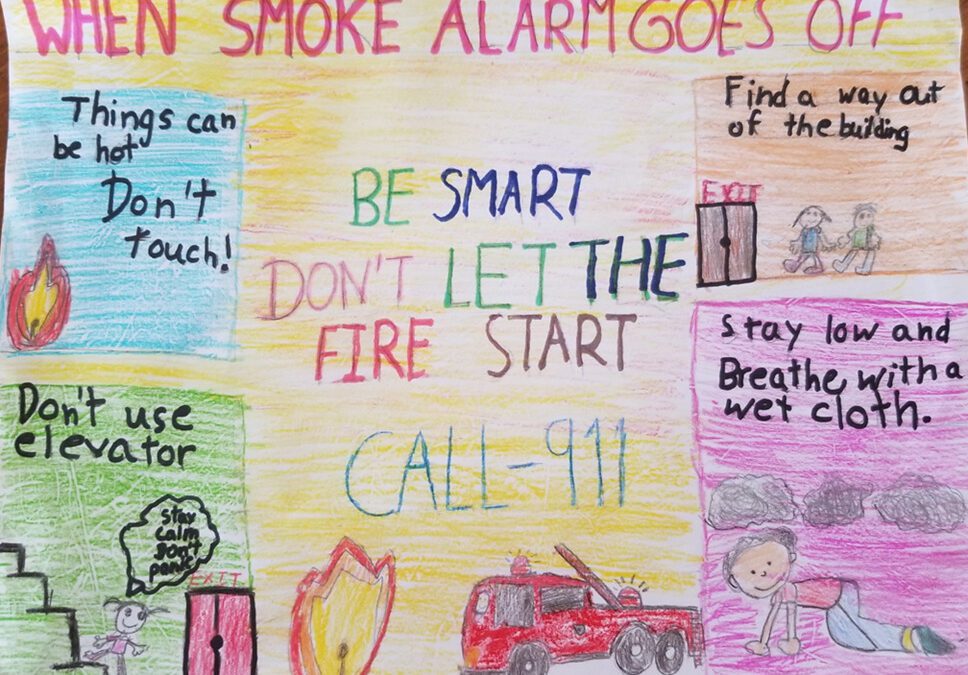 WHEN SMOKE ALARM GOES OFF
Things can
be hot
Don't
touch!
BE SMART
DON'T LET THE
FIRE START
CALL-911
Find a way out
of the building
EXIT
Stay low and
Breathe with a
wet cloth.
Don't use
elevator
Stay
calm
don't
panic
EXIT